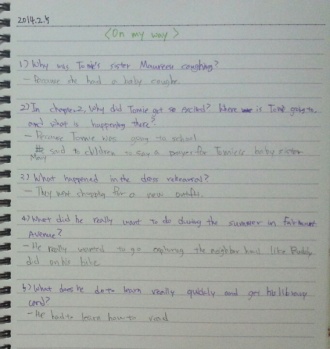 2014.2.
<On my way>
1) Why was Tomie's sister Maureen coughing?
- Because she had a baby cough.
2) In chapter 2, Why did Tomie get so excited? Where is Tomie going to
and what is happening there?
- Because Tomie was going to school
said to children to say a prayer for Tomie's baby sister
3) What happened in the dress rehearsal?
- They went shopping for a new outfit.
4) What did he really want to do during the summer in fairmount
Avenue?
- He really wanted to go exploring the neighbor hood, like Buddy
did on his bike
5) What does he do to learn really quickly and get his library
card?
- He had to learn how to read